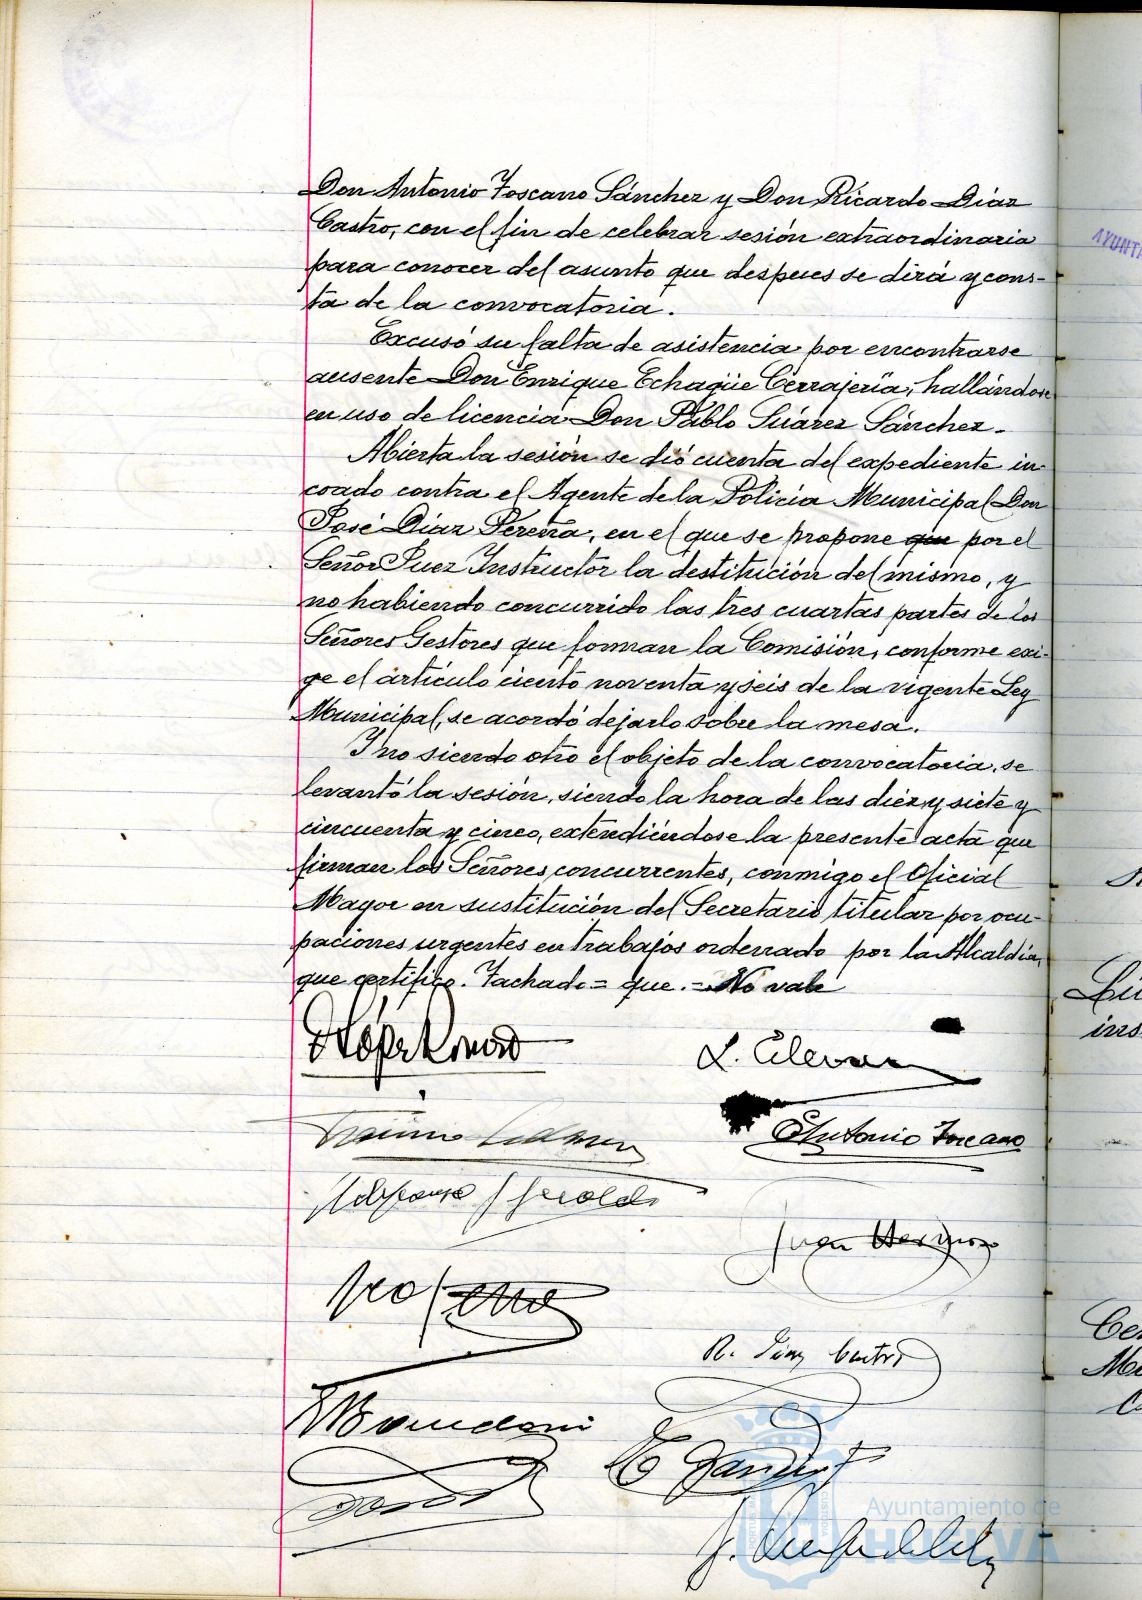 Don Antonio Toscano Sánchez y Don Ricardo Díaz
Castro, con el fin de celebrar sesión extraordinaria
para conocer del asunto que despues se dirá y cons-
ta de la convocatoria.
Excusó su falta de asistencia por encontrarse
ausente Don Enrique Echagüe Cerrajería, hallándose
en uso de licencia Don Pablo Suárez Sánchez.
Abierta la sesión se dió cuenta del expediente in-
coado contra el Agente de la Policía Municipal Don
José Díaz Pereña, en el que se propone que por el
Señor Juez Instructor la destitución del mismo, y
no habiendo concurrido las tres cuartas partes de los
Señores Gestores que forman la Comisión, conforme exi-
ge el artículo ciento noventa y seis de la vigente Ley
Municipal, se acordó dejarlo sobre la mesa.
Y no siendo otro el objeto de la convocatoria, se
levantó la sesión, siendo la hora de las diez y siete y
cincuenta y cinco, extendiéndose la presente acta que
firman los Señores concurrentes, conmigo el Oficial
Mayor en sustitución del Secretario titular por ocu-
paciones urgentes en trabajos ordenado por la Alcaldía,
que certifico. Tachado = que. = No vale
Antonio Toscano
Juan
R. Díaz Castro
Ayuntamiento de
HUELVA